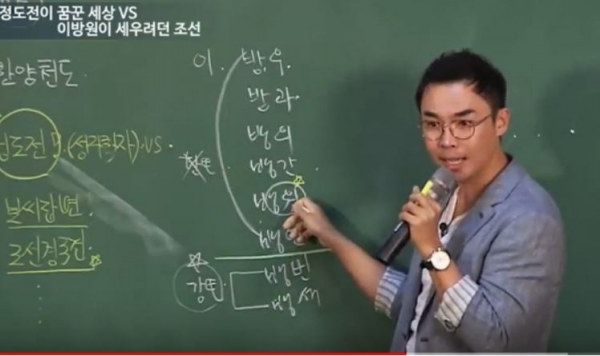 정도전이 꿈꾼 세상 VS
이방원이 세우려던 조선
한양천도
정도전 (성리학자) VS
불씨잡변
조선경국전
이. 방우
방과
방의
방간
방원
방번
방석